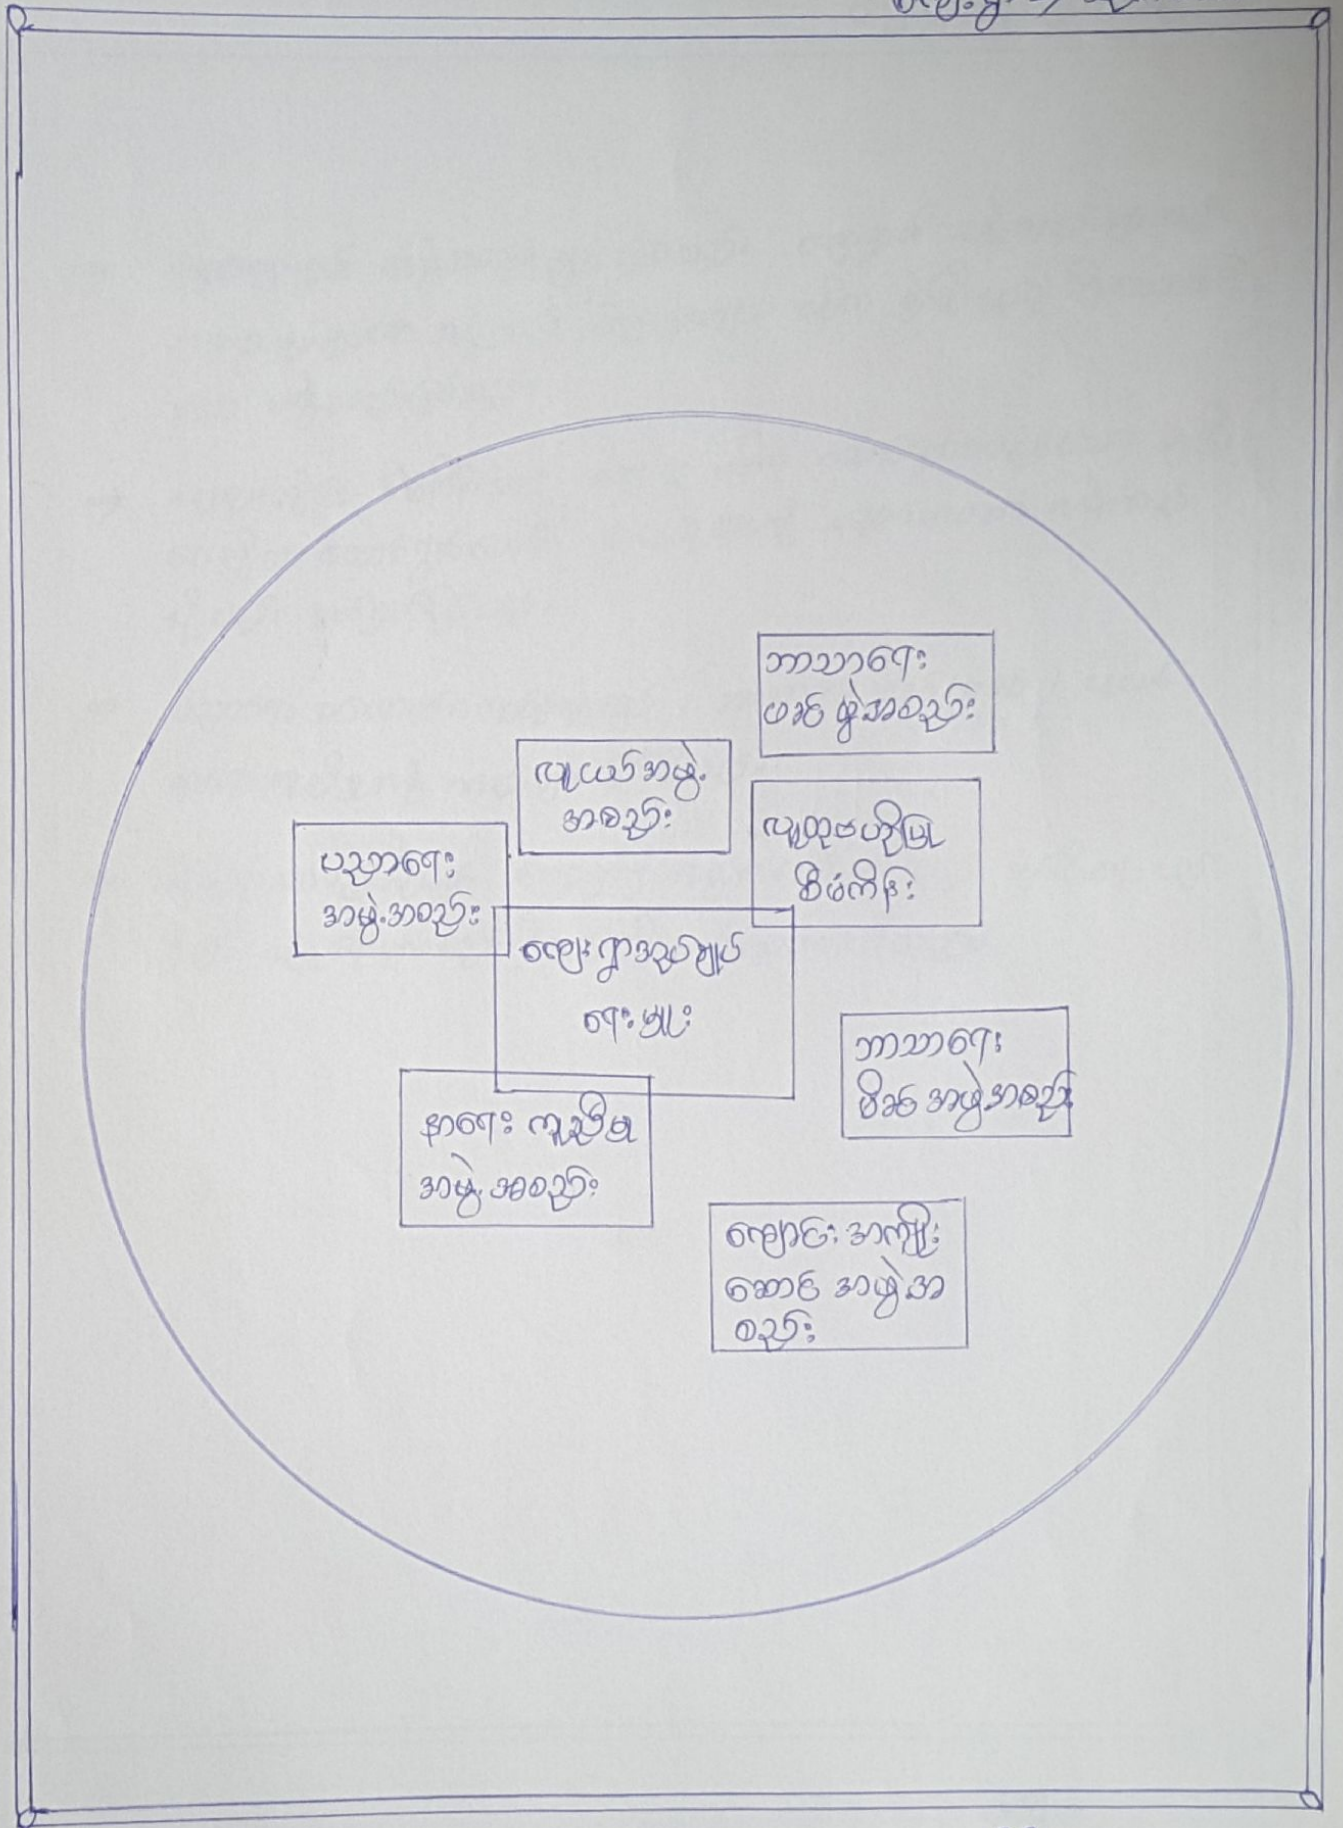 ဘာသာရေး
ဖခင် ဖွဲ့အစည်း
လူငယ်အဖွဲ့
အစည်း
လူထုဗဟိုပြု
စီမံကိန်း
ပညာရေး
အဖွဲ့အစည်း
ကျေးရွာအုပ်ချုပ်
ရေးမှူး
ဘာသာရေး
မိခင် အဖွဲ့အစည်း
နာရေး ကူညီမှု
အဖွဲ့အစည်း
ကျောင်းအကျိုး
ဆောင် အဖွဲ့အ
စည်း